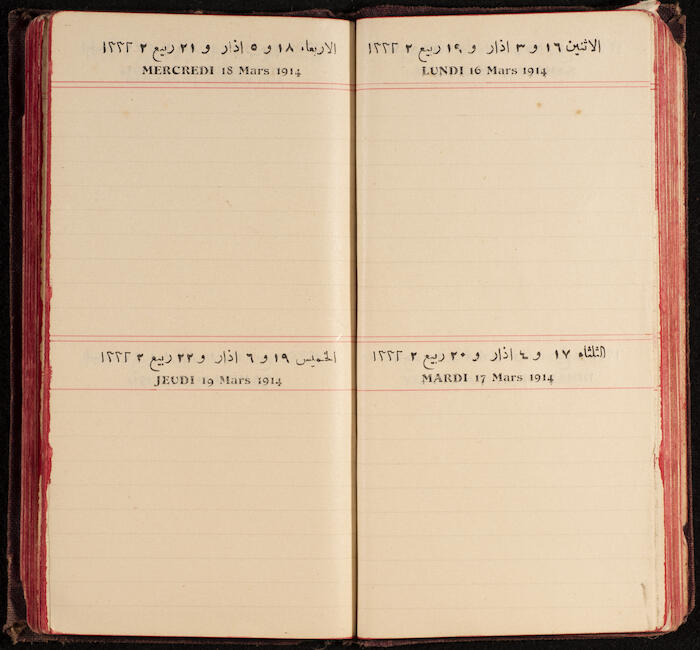 الاثنين ١٦ و ٣ اذار و ١٩ ربيع ٢ ١٣٣٢
LUNDI 16 Mars 1914
الثلثاء ١٧ و ٤ اذار و ٢٠ ربيع ٢ ١٣٣٢
MARDI 17 Mars 1914
الاربعاء ١٨ و ٥ اذار و ٢١ ربيع ٢ ١٣٣٢
MERCREDI 18 Mars 1914
الخميس ١٩ و ٦ اذار و ٢٢ ربيع ٢ ١٣٣٢
JEUDI 19 Mars 1914